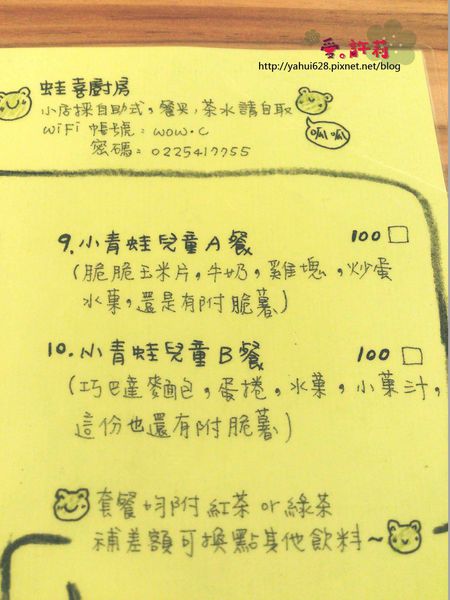 愛。許莉
http://yahui628.pixnet.net/blog
蛙喜廚房
小店採自助式,餐具,茶水請自取
WiFi 帳號:wow.c
密碼:0225417755
呱呱
9.小青蛙兒童A餐 100
(脆脆玉米片,牛奶,雞塊,炒蛋
水菓,還是有附脆薯)
10.小青蛙兒童B餐 100
(巧巴達麵包,蛋捲,水菓,小菓汁,
這份也還有附脆薯)
套餐均附紅茶or綠茶
補差額可換點其他飲料~